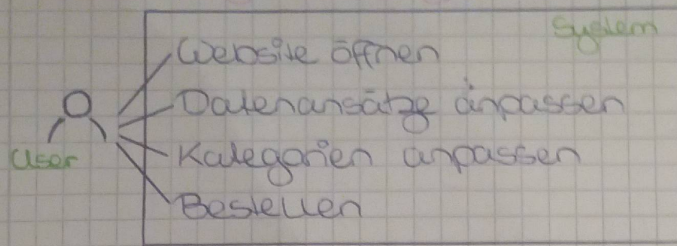 System
Website öffnen
Datenansätze anpassen
User
Kategorien anpassen
Bestellen